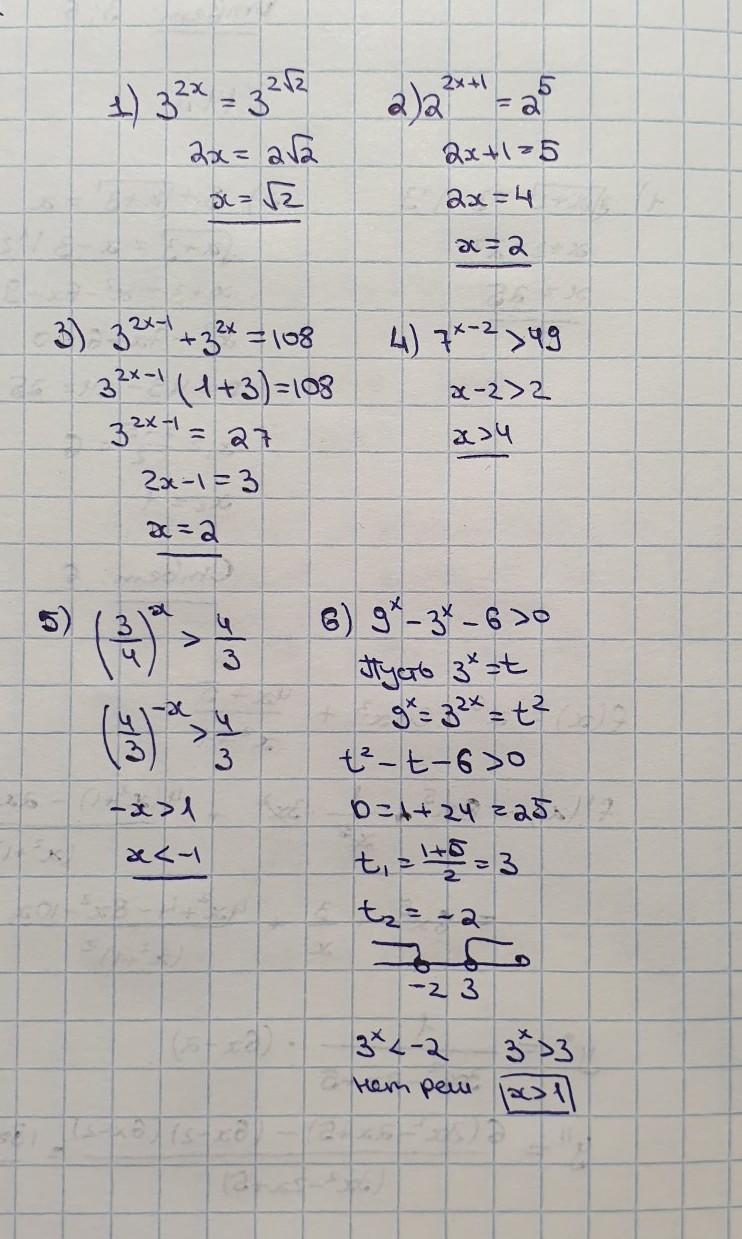 1) 3^{2x} = 3^{2√2}
2x = 2√2
x = √2
2) 2^{2x+1} = 2^5
2x+1=5
2x=4
x=2
3) 3^{2x-1} + 3^{2x} = 108
3^{2x-1} (1+3)=108
3^{2x-1} = 27
2x-1=3
x=2
4) 7^{x-2} > 49
x-2>2
x>4
5) (3/4)^x > 4/3
(4/3)^{-x} > 4/3
-x>1
x<-1
6) 9^x - 3^x - 6 > 0
Пусть 3^x = t
9^x = 3^{2x} = t^2
t^2 - t - 6 > 0
D = 1 + 24 = 25
t_1 = (1+5)/2 = 3
t_2 = -2
-2 3
3^x < -2 3^x > 3
нет реш x>1